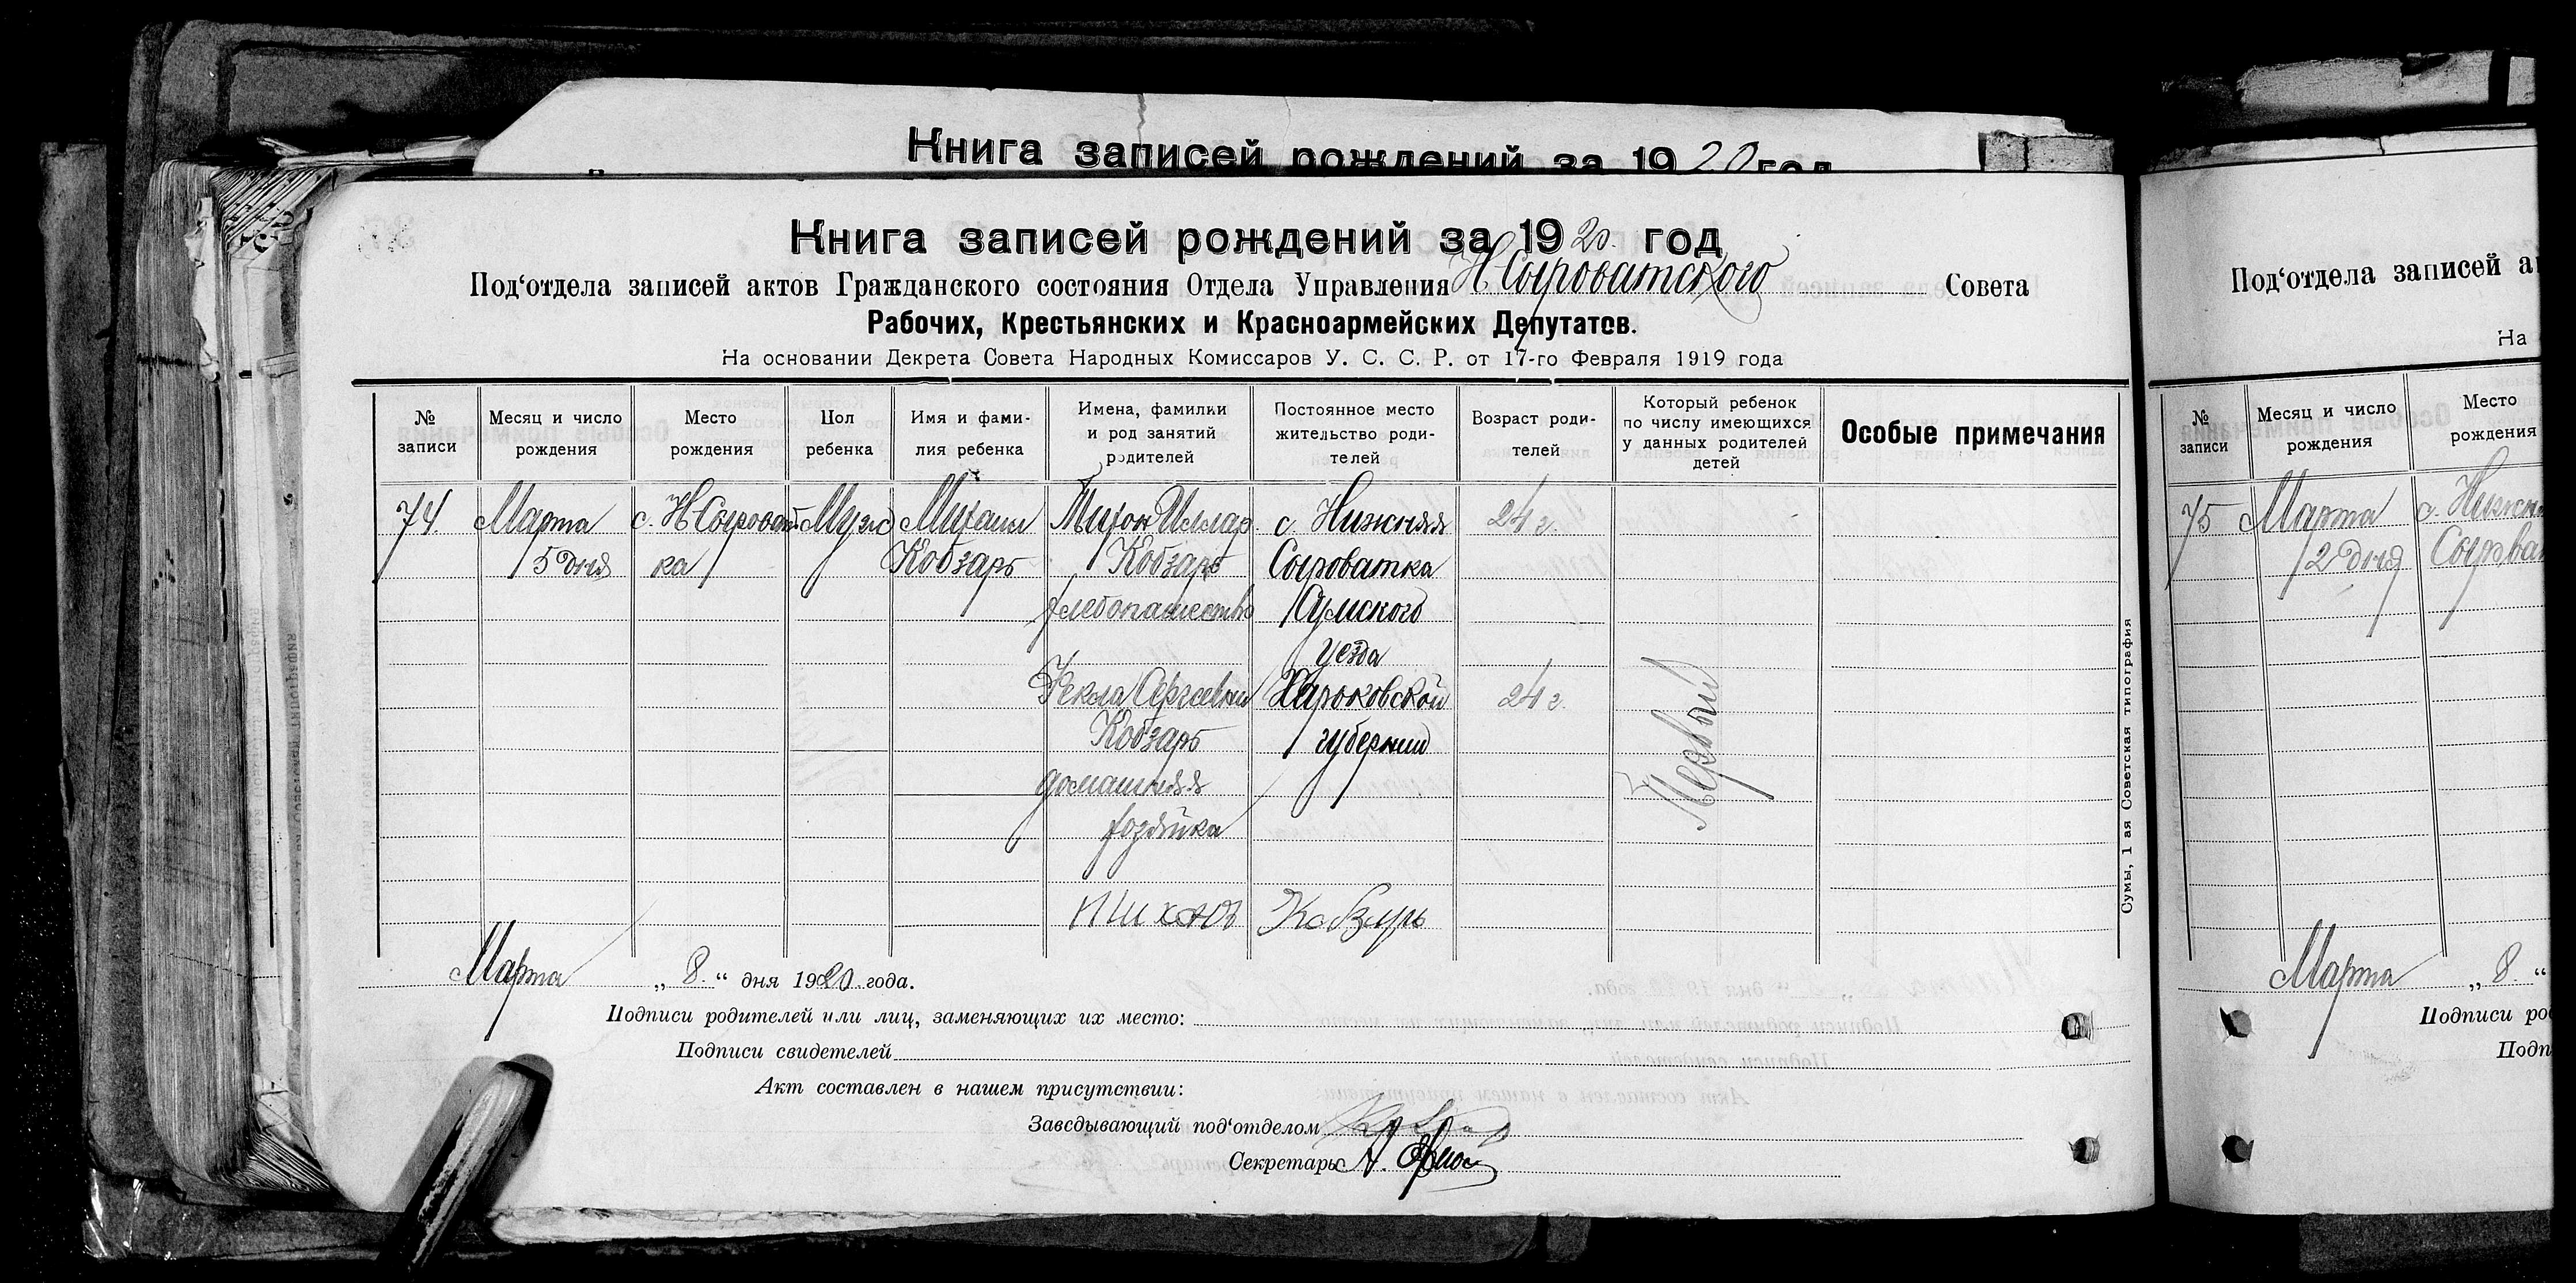 Книга записей рождений за 1920 год
Книга записей рождений за 1920. год
Под‘отдела записей актов Гражданского состояния Отдела Управления Н Сыроватского Совета
Рабочих, Крестьянских и Красноармейских Депутатов.
На основании Декрета Совета Народных Комиссаров У. С. С. Р. от 17-го Февраля 1919 года
№ записи
Месяц и число рождения
Место рождения
Пол ребенка
Имя и фамилия ребенка
Имена, фамилии и род занятий родителей
Постоянное место жительство родителей
Возраст родителей
Который ребенок по числу имеющихся у данных родителей детей
Особые примечания
74. Марта с. Н Сыроват Муж Михаил Тихон с. Нижняя 24 г.
5 дня ка Кобзарь Кобзарь Сыроватка
хлебопашество Сумского
уезда
Фекла Сергеевна Харьковской 24 г.
Кобзарь губернии
Первый
домашняя
хозяйка
Кобзарь
Марта „ 8. “ дня 1920 года.
Подписи родителей или лиц, заменяющих их место:
Подписи свидетелей
Акт составлен в нашем присутствии:
Заведывающий под‘отделом
Секретарь А.
Сумы, 1 ая Советская типография
Под‘отдела записей а
На
№ записи
Месяц и число рождения
Место рождения
75 Марта с. Нижн
2 дня Сырова
Марта „ 8. “
Подписи ро
Подп